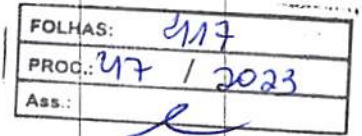 FOLHAS: 417
PROC.: 47 / 2023
Ass.: